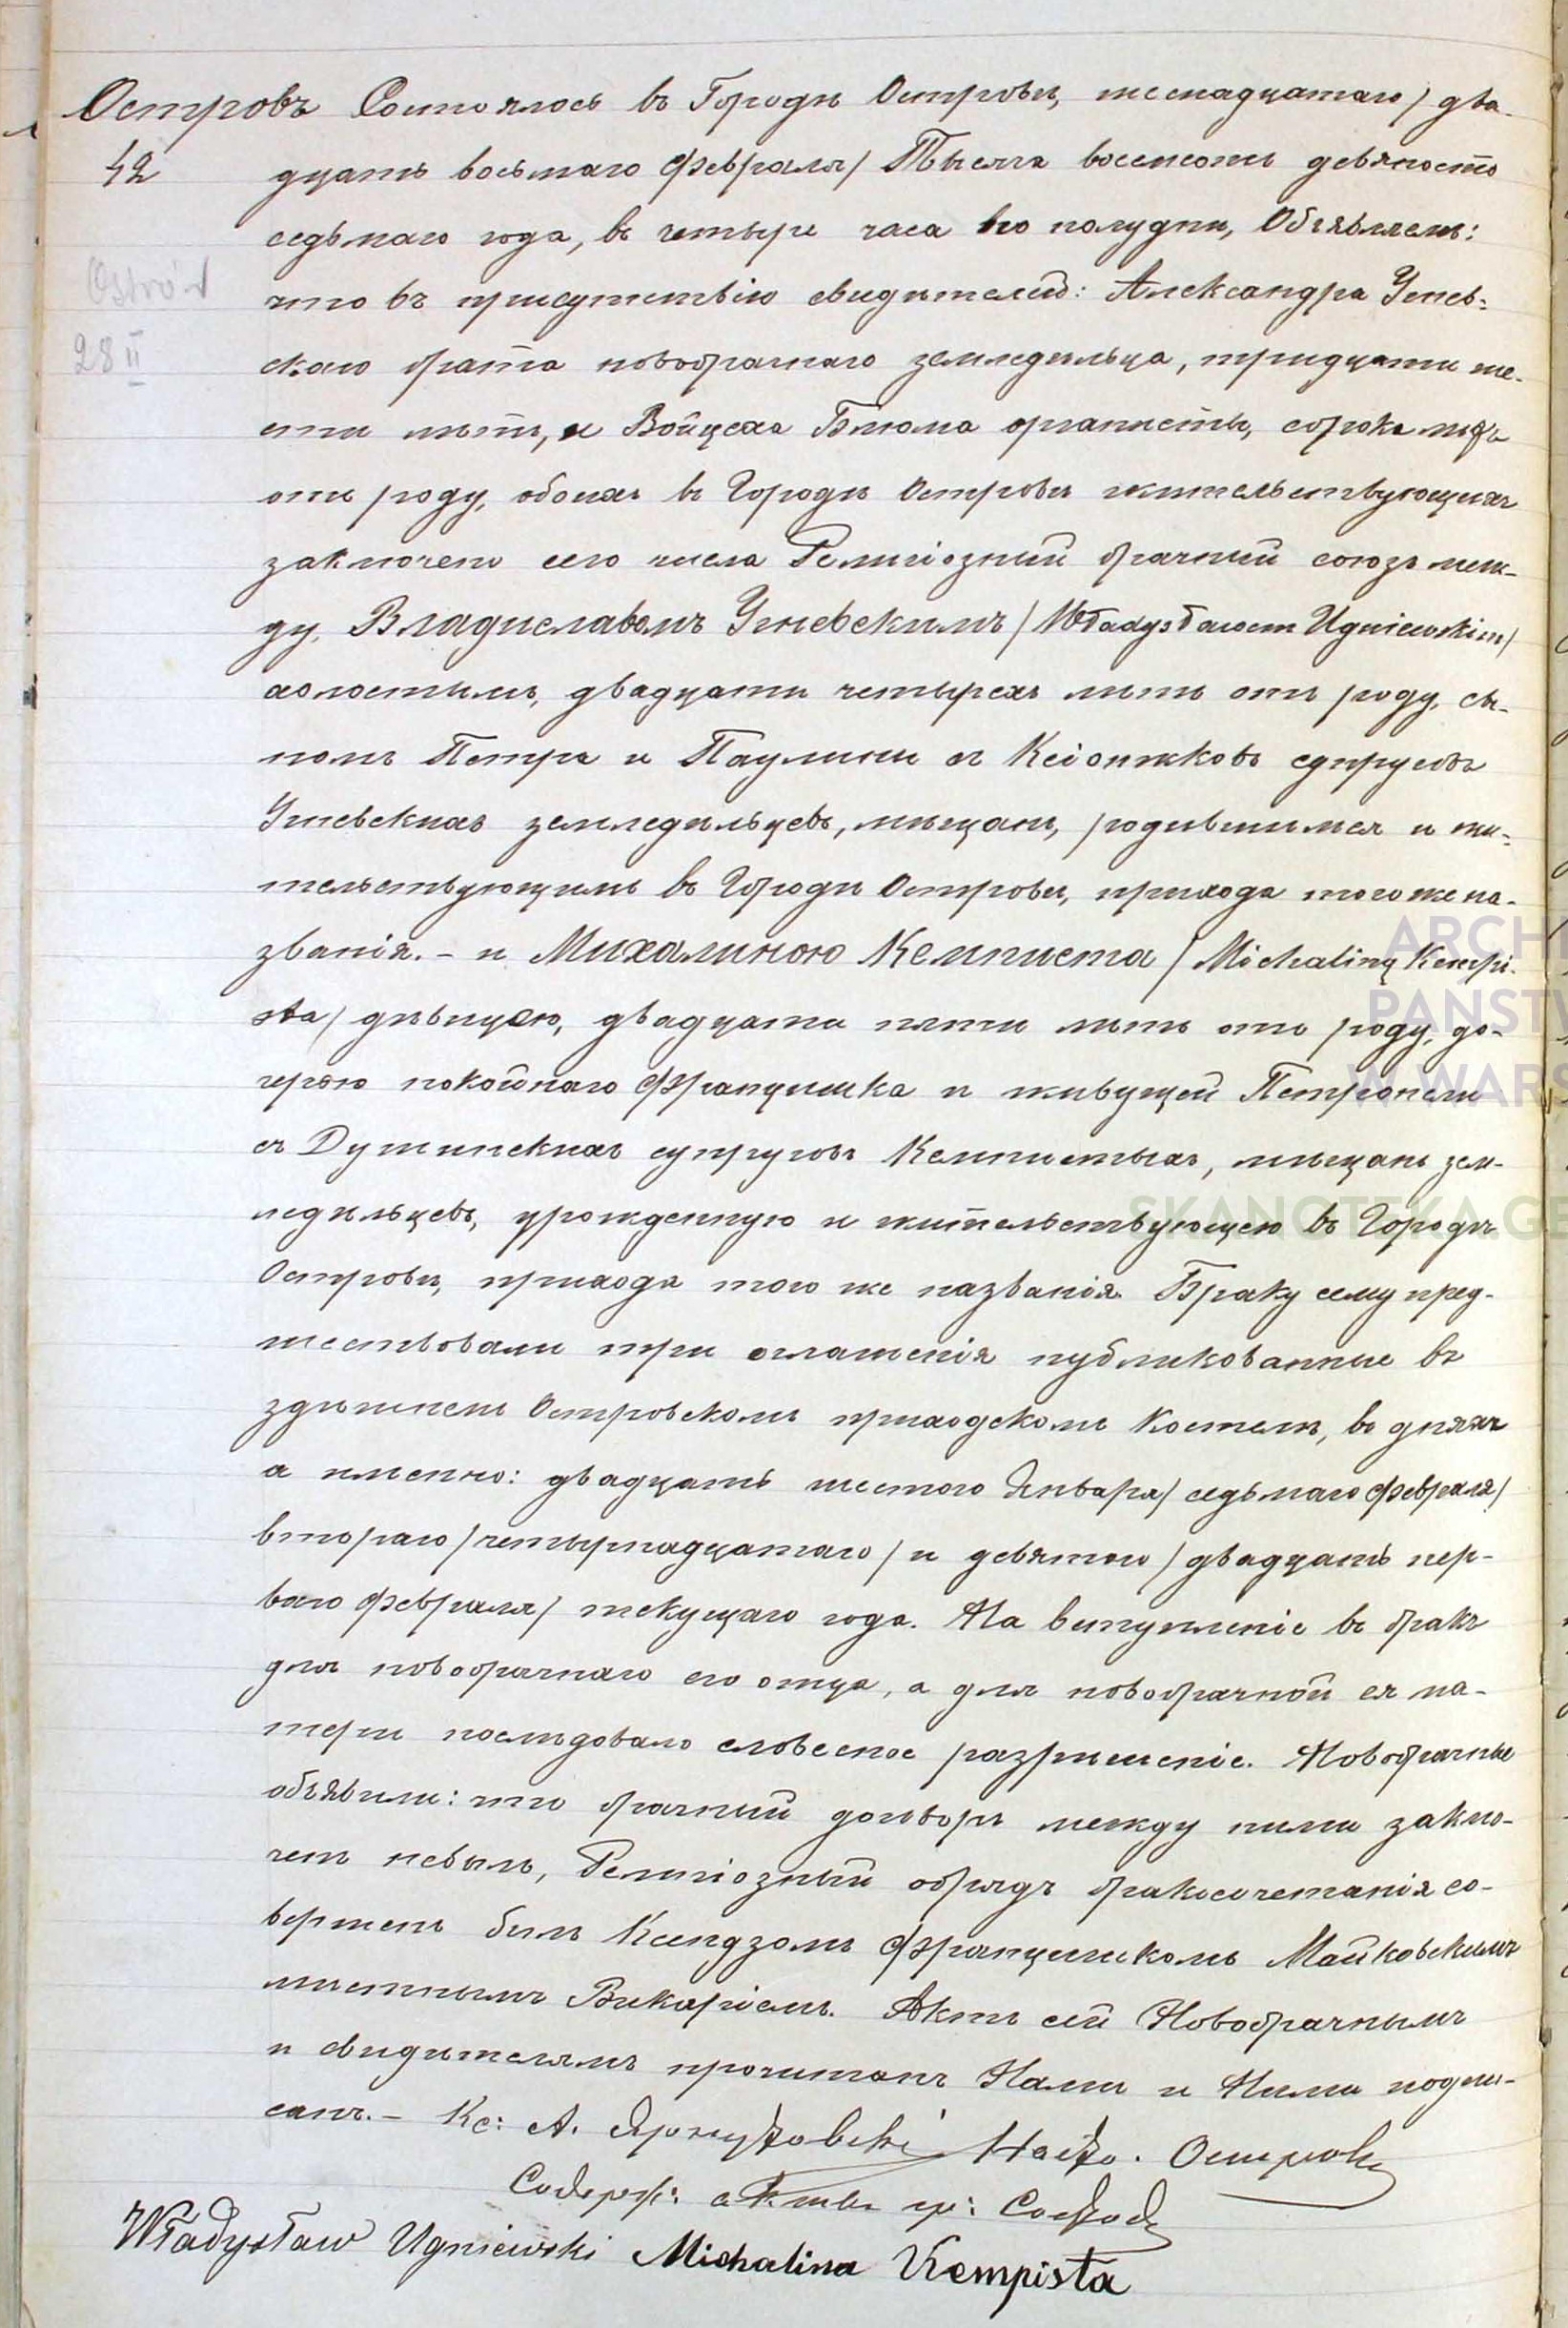 Островъ Состоялось въ Городѣ Островѣ, шеснадцатаго / два-
42 дцать восьмаго Февраля / Тысяча восемсотъ девяносто
седьмаго года, въ четыре часа по полудни, Объявляемъ:
Ostrów
что въ присутствію свидѣтелей: Александра Угнев-
28 II
скаго брата новобрачнаго земледѣльца, тридцати ше-
сти лѣтъ, и Войцеха Блюма органисты, сорока лѣтъ
отъ роду, обоихъ въ Городѣ Островѣ жительствующихъ
заключенъ сего числа Религіозный брачный союзъ меж-
ду, Владиславомъ Угневскимъ / Władysławem Ugniewskim /
холостымъ, двадцати четырехъ лѣтъ отъ роду, сы-
номъ Петра и Паулины съ Ксіонжковъ супруговъ
Угневскихъ земледѣльцевъ, мѣщанъ, родившимся и жи-
тельствующимъ въ Городѣ Островѣ, прихода того же на-
званія. - и Михалиною Кемписта / Michaliną Kempi-
sta / дѣвицею, двадцати пяти лѣтъ отъ роду, до-
черью покойнаго Францишка и живущей Петронели
съ Дутинскихъ супруговъ Кемпистыхъ, мѣщанъ зем-
ледѣльцевъ, урожденную и жительствующею въ Городѣ
Островѣ, прихода того же названія. Браку сему пред-
шествовали три оглашенія публикованные въ
здѣшнемъ Островскомъ приходскомъ Костелѣ, въ дняхъ
а именно: двадцать шестого Января / седьмаго Февраля /
втораго / четырнадцатаго / и девятого / двадцать пер-
ваго Февраля / текущаго года. На вступленіе въ бракъ
для новобрачнаго его отца, а для новобрачной ея ма-
тери послѣдовало словесное разрѣшеніе. Новобрачные
объявили: что брачный договоръ между ними заклю-
ченъ небылъ, Религіозный обрядъ бракосочетанія со-
вершенъ былъ Ксендзомъ Францишкомъ Майковскимъ
мѣстнымъ Викаріемъ. Актъ сей Новобрачнымъ
и свидѣтелямъ прочитанъ Нами и Ними подпи-
санъ. - Кс: А. Насто. Островъ
Содерж: актовъ гр:
Władysław Ugniewski Michalina Kempista
ARCHI
PAŃSTW
W WARS
SKANOTEKA GE